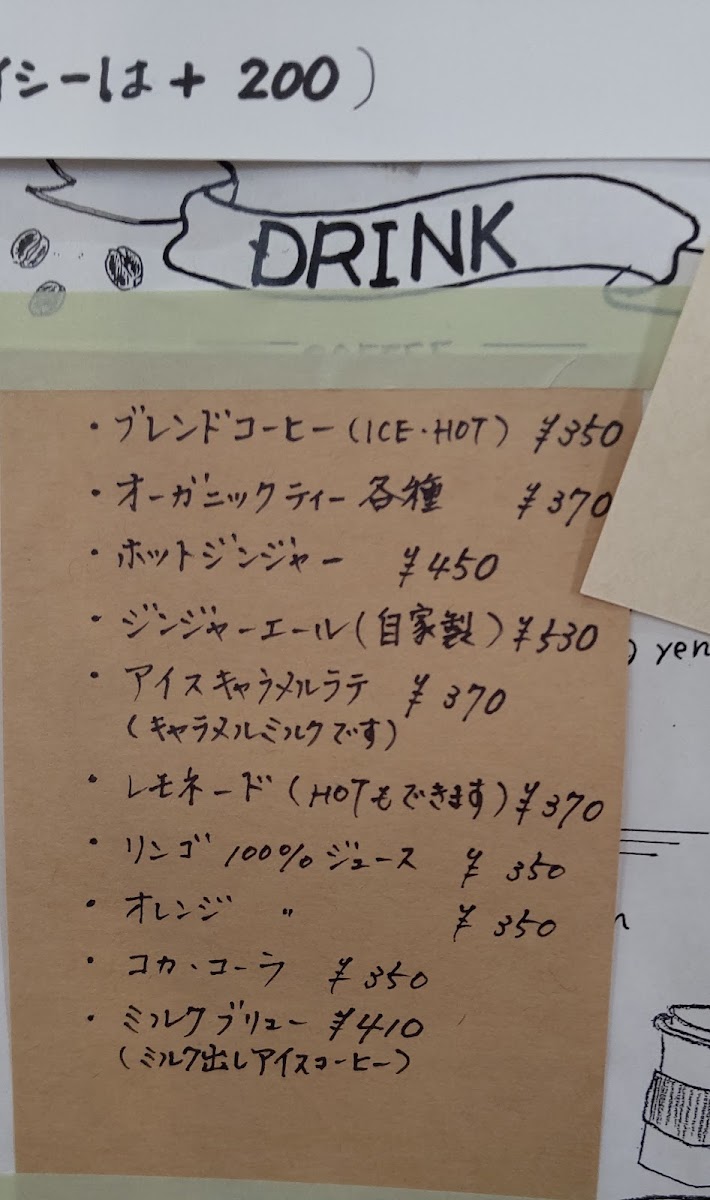 イシーは + 200)
DRINK
COFFEE
・ブレンドコーヒー(ICE・HOT) ¥350
・オーガニックティー各種 ¥370
・ホットジンジャー ¥450
・ジンジャーエール(自家製) ¥530
・アイスキャラメルラテ ¥370
(キャラメルミルクです)
・レモネード(HOTもできます) ¥370
・リンゴ100%ジュース ¥350
・オレンジ 〃 ¥350
・コカ・コーラ ¥350
・ミルクブリュー ¥410
(ミルク出しアイスコーヒー)
yen